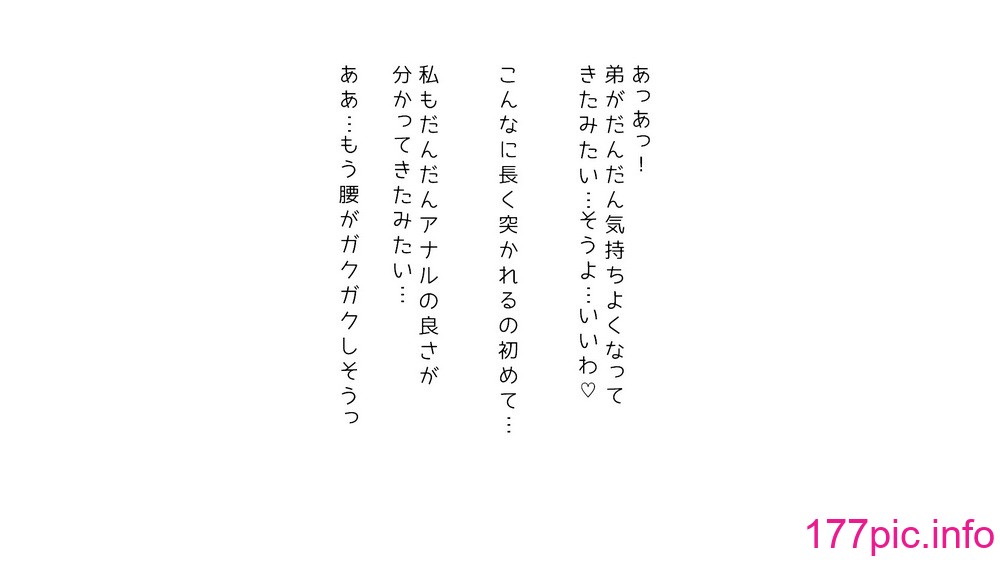 あっあっ！
弟がだんだん気持ちよくなって
きたみたい…そうよ…いいわ♡
こんなに長く突かれるの初めて…
私もだんだんアナルの良さが
分かってきたみたい…
ああ…もう腰がガクガクしそうっ
177pic.info